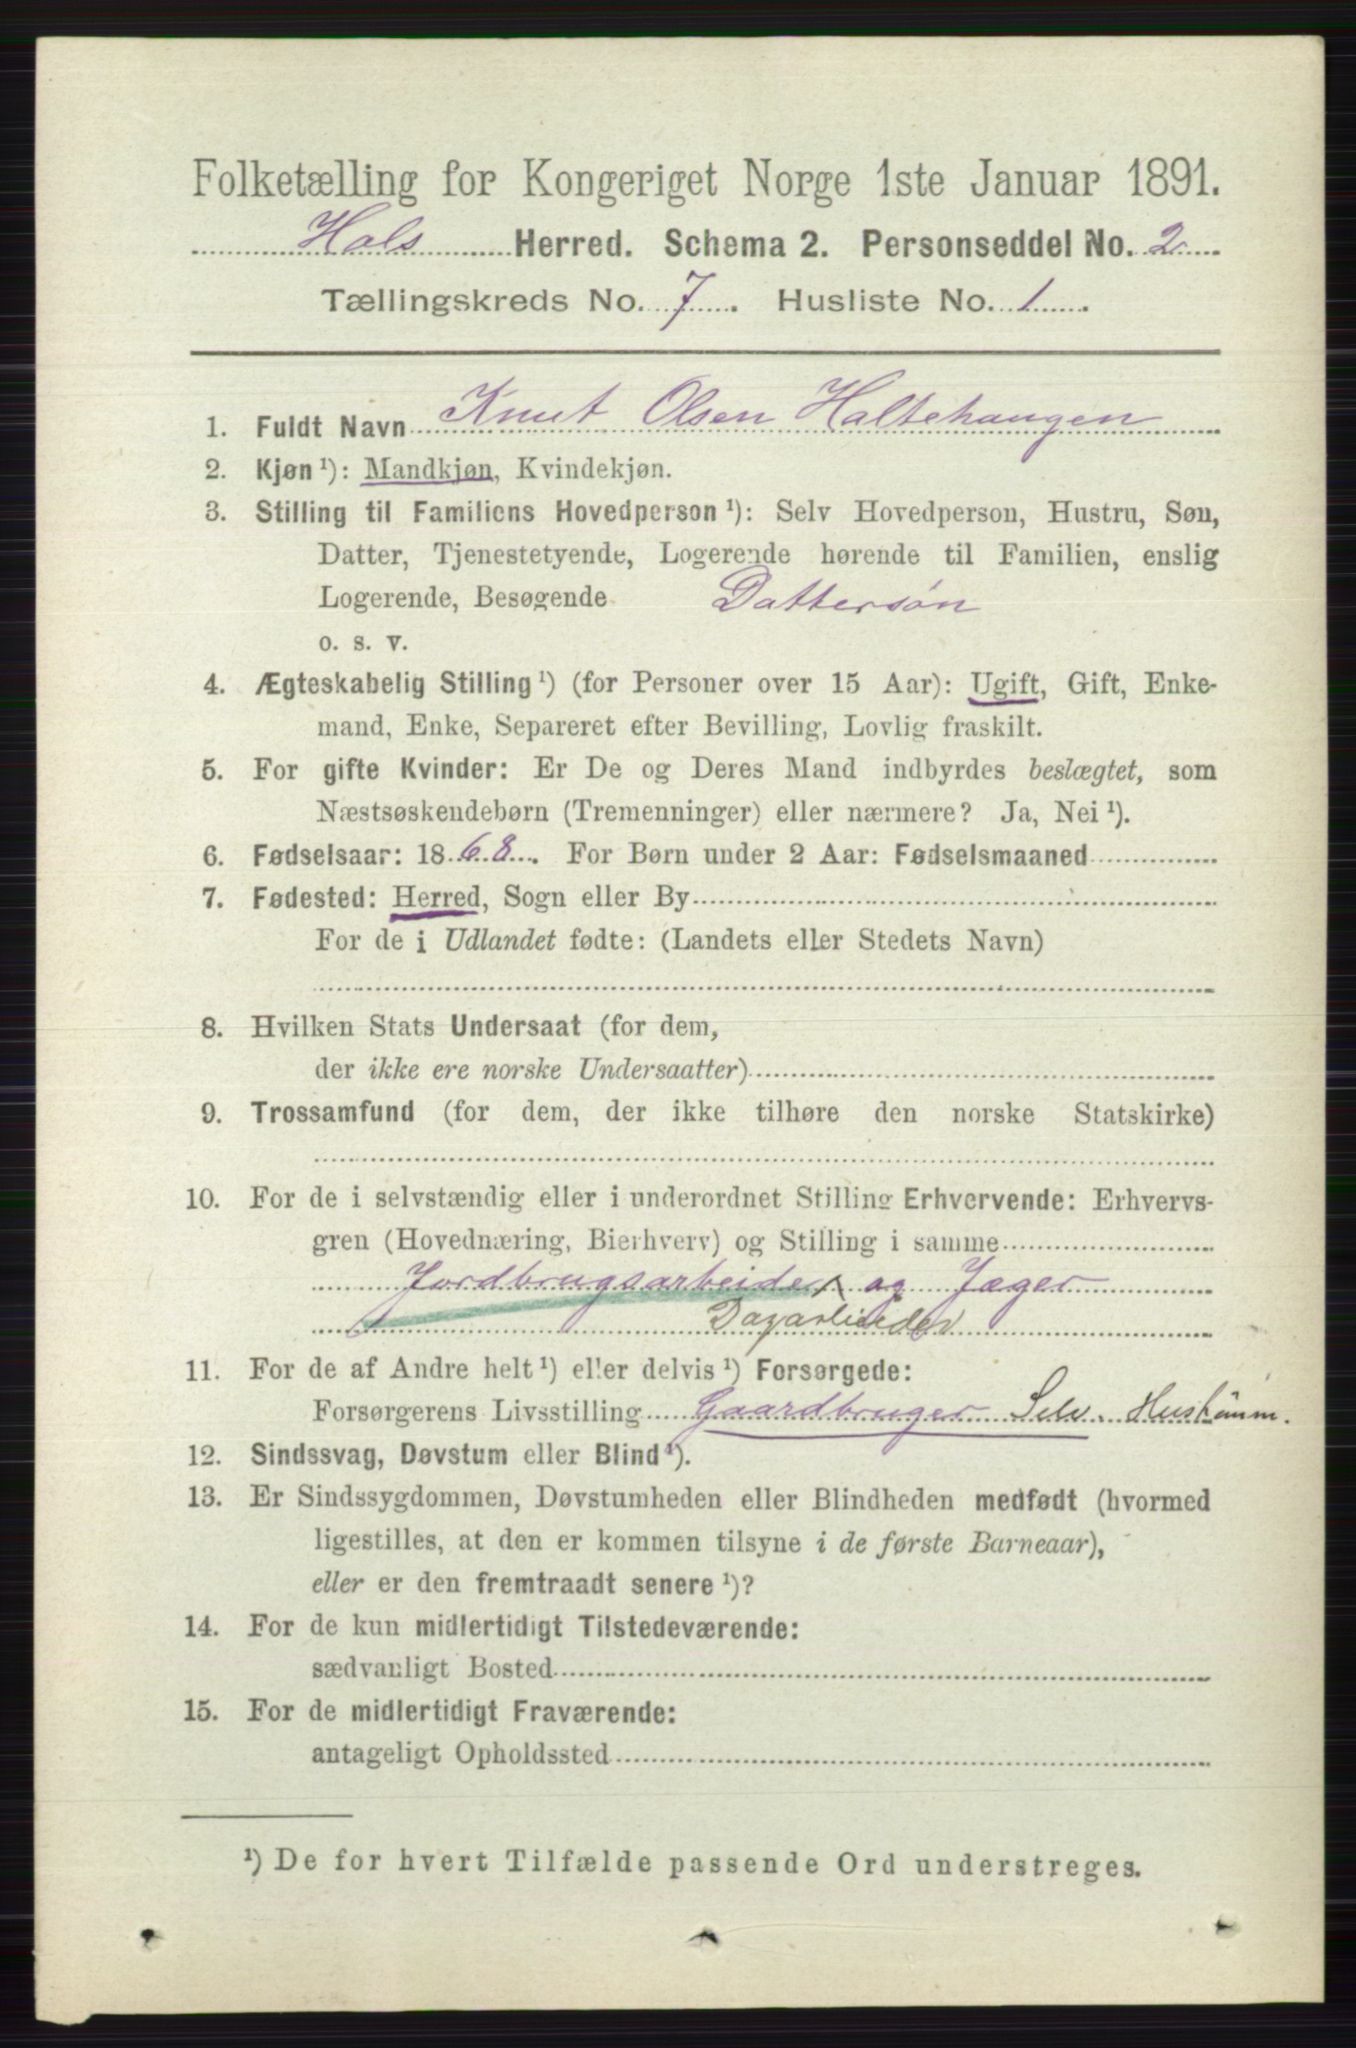 Folketælling for Kongeriget Norge 1ste Januar 1891.
Hals Herred. Schema 2. Personseddel No. 2
Tællingskreds No. 7. Husliste No. 1.
1. Fuldt Navn Knut Olsen Haltehaugen
2. Kjøn ¹): Mandkjøn, Kvindekjøn.
3. Stilling til Familiens Hovedperson ¹): Selv Hovedperson, Hustru, Søn,
Datter, Tjenestetyende, Logerende hørende til Familien, enslig
Logerende, Besøgende Dattersøn
o. s. v.
4. Ægteskabelig Stilling ¹) (for Personer over 15 Aar): Ugift, Gift, Enke-
mand, Enke, Separeret efter Bevilling, Lovlig fraskilt.
5. For gifte Kvinder: Er De og Deres Mand indbyrdes beslægtet, som
Næstsøskendebørn (Tremenninger) eller nærmere? Ja, Nei ¹).
6. Fødselsaar: 1868. For Børn under 2 Aar: Fødselsmaaned
7. Fødested: Herred, Sogn eller By
For de i Udlandet fødte: (Landets eller Stedets Navn)
8. Hvilken Stats Undersaat (for dem,
der ikke ere norske Undersaatter)
9. Trossamfund (for dem, der ikke tilhøre den norske Statskirke)
10. For de i selvstændig eller i underordnet Stilling Erhvervende: Erhvervs-
gren (Hovednæring, Bierhverv) og Stilling i samme
Jordbrugsarbeider og Jæger
Dagarbeider
11. For de af Andre helt ¹) eller delvis ¹) Forsørgede:
Forsørgerens Livsstilling Gaardbruger Selv.
12. Sindssvag, Døvstum eller Blind ¹).
13. Er Sindssygdommen, Døvstumheden eller Blindheden medfødt (hvormed
ligestilles, at den er kommen tilsyne i de første Barneaar),
eller er den fremtraadt senere ¹)?
14. For de kun midlertidigt Tilstedeværende:
sædvanligt Bosted
15. For de midlertidigt Fraværende:
antageligt Opholdssted
¹) De for hvert Tilfælde passende Ord understreges.